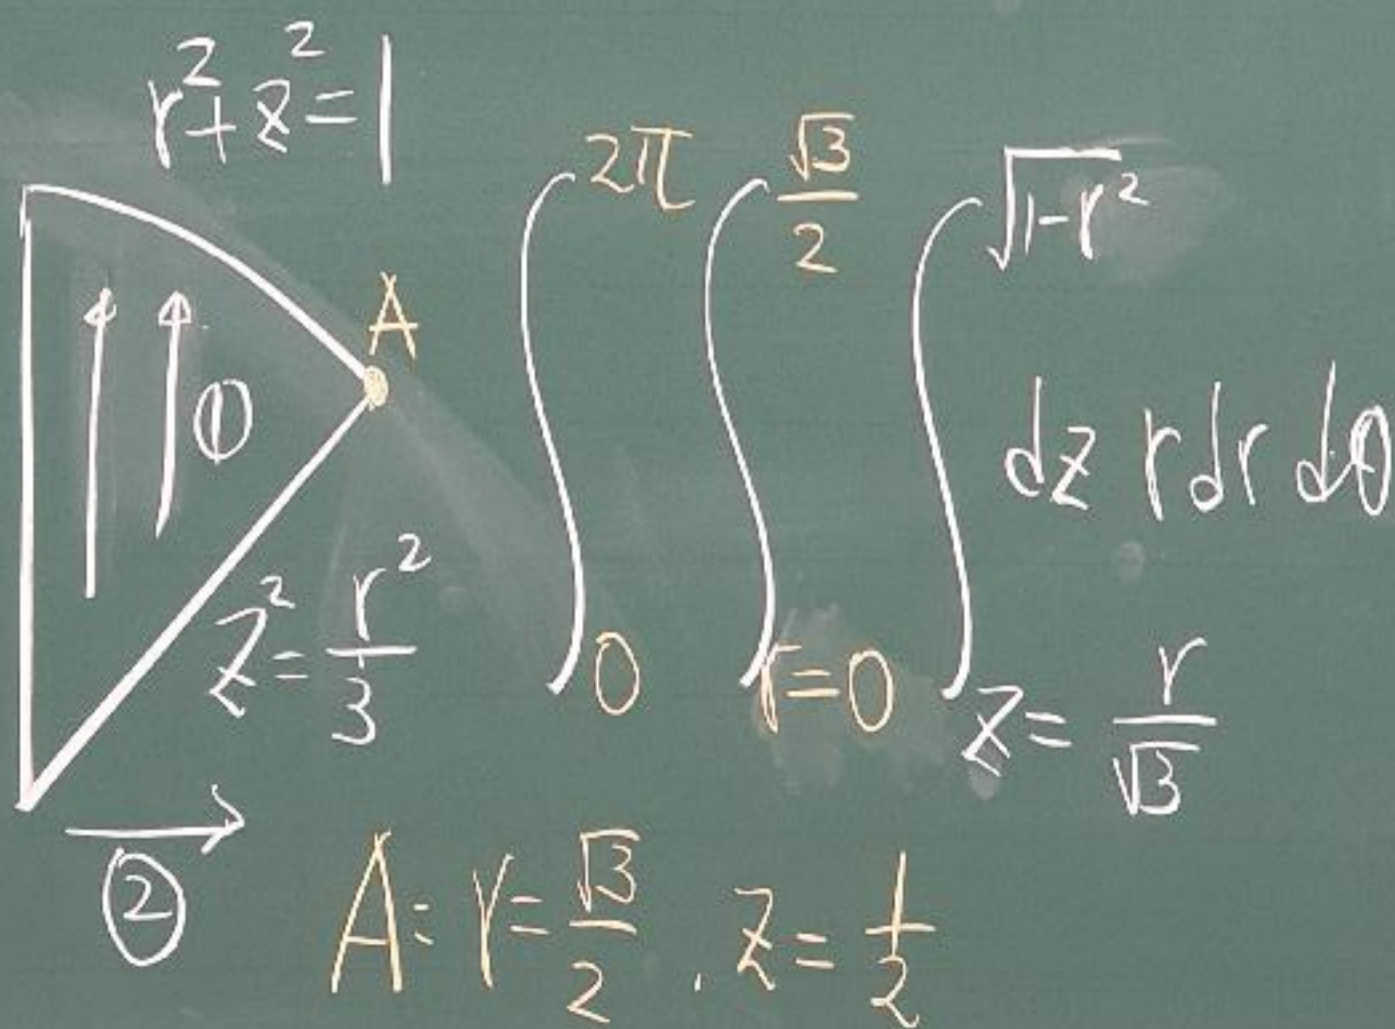 r²+z²=1
A
①
z²=r²/3
②
∫_0^{2π} ∫_{r=0}^{√3/2} ∫_{z=r/√3}^{√(1-r²)} dz r dr dθ
A: r=√3/2, z=1/2